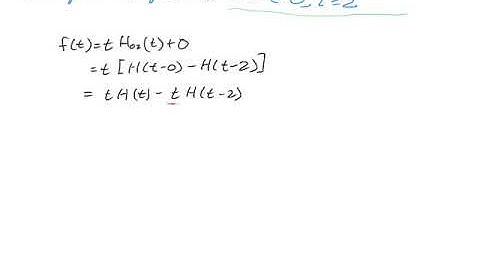 f(t)=t H₀₂(t)+0
=t [H(t-0)-H(t-2)]
= t H(t)- t H(t-2)